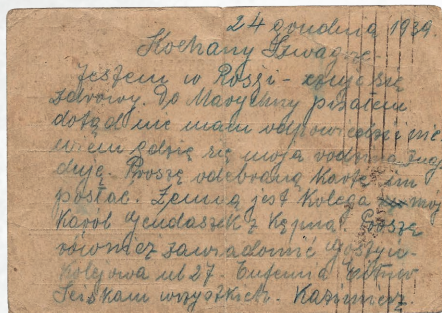 24 grudnia 1939.
Kochany Szwagrze
Jestem w Rosji - czuję się
zdrowy. Do Marychny pisałem
dotąd nie mam odpowiedzi nic
wiem gdzie się moja rodzina znaj
duje. Proszę odebraną kartkę im
posłać. Zemną jest Kolega moj
Karol z Kępna. Proszę
również zawiadomić
Kolejowa ul 27. Eugenia
Sciskam wszystkich. Kazimierz.